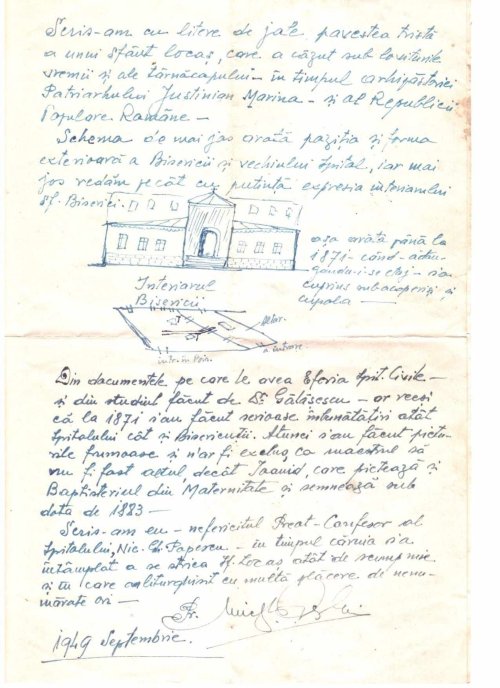 Scris-am cu litere de jale povestea tristă
a unui sfânt locaș, care a căzut sub loviturile
vremii și ale târnăcopului – în timpul arhipăstoriei
Patriarhului Justinian Marina – și al Republicii
Populare Române –
Schema de mai jos arată poziția și forma
exterioară a Bisericii și vechiului Spital, iar mai
jos redăm pe cât cu putință expresia interiorului
Sf. Biserici.
așa arăta până la
1871 – când – adău-
gându-i-se etaj – s'a
cuprins sub acoperiș și
cupola —
Interiorul
Bisericii
Altar.
a intrare
Din documentele pe care le avea Eforia Spit. Civile –
și din studiul făcut de Dr Gălășescu – or reeși
că la 1871 s'au făcut serioase îmbunătățiri atât
Spitalului cât și Bisericuții. Atunci s'au făcut pictu-
rile frumoase și n'ar fi exclus, ca maestrul să
nu fi fost altul decât Ioanid, care pictează și
Baptisteriul din Maternitate și semnează sub
data de 1883 –
Scris-am eu – nefericitul Preot – Confesor al
Spitalului, Nic. Gh. Popescu – în timpul căruia s'a
întâmplat a se strica Sf. Locaș atât de scump mie
și în care am liturghisit cu multă plăcere de nenu-
mărate ori —
Pr.
1949 Septembrie.